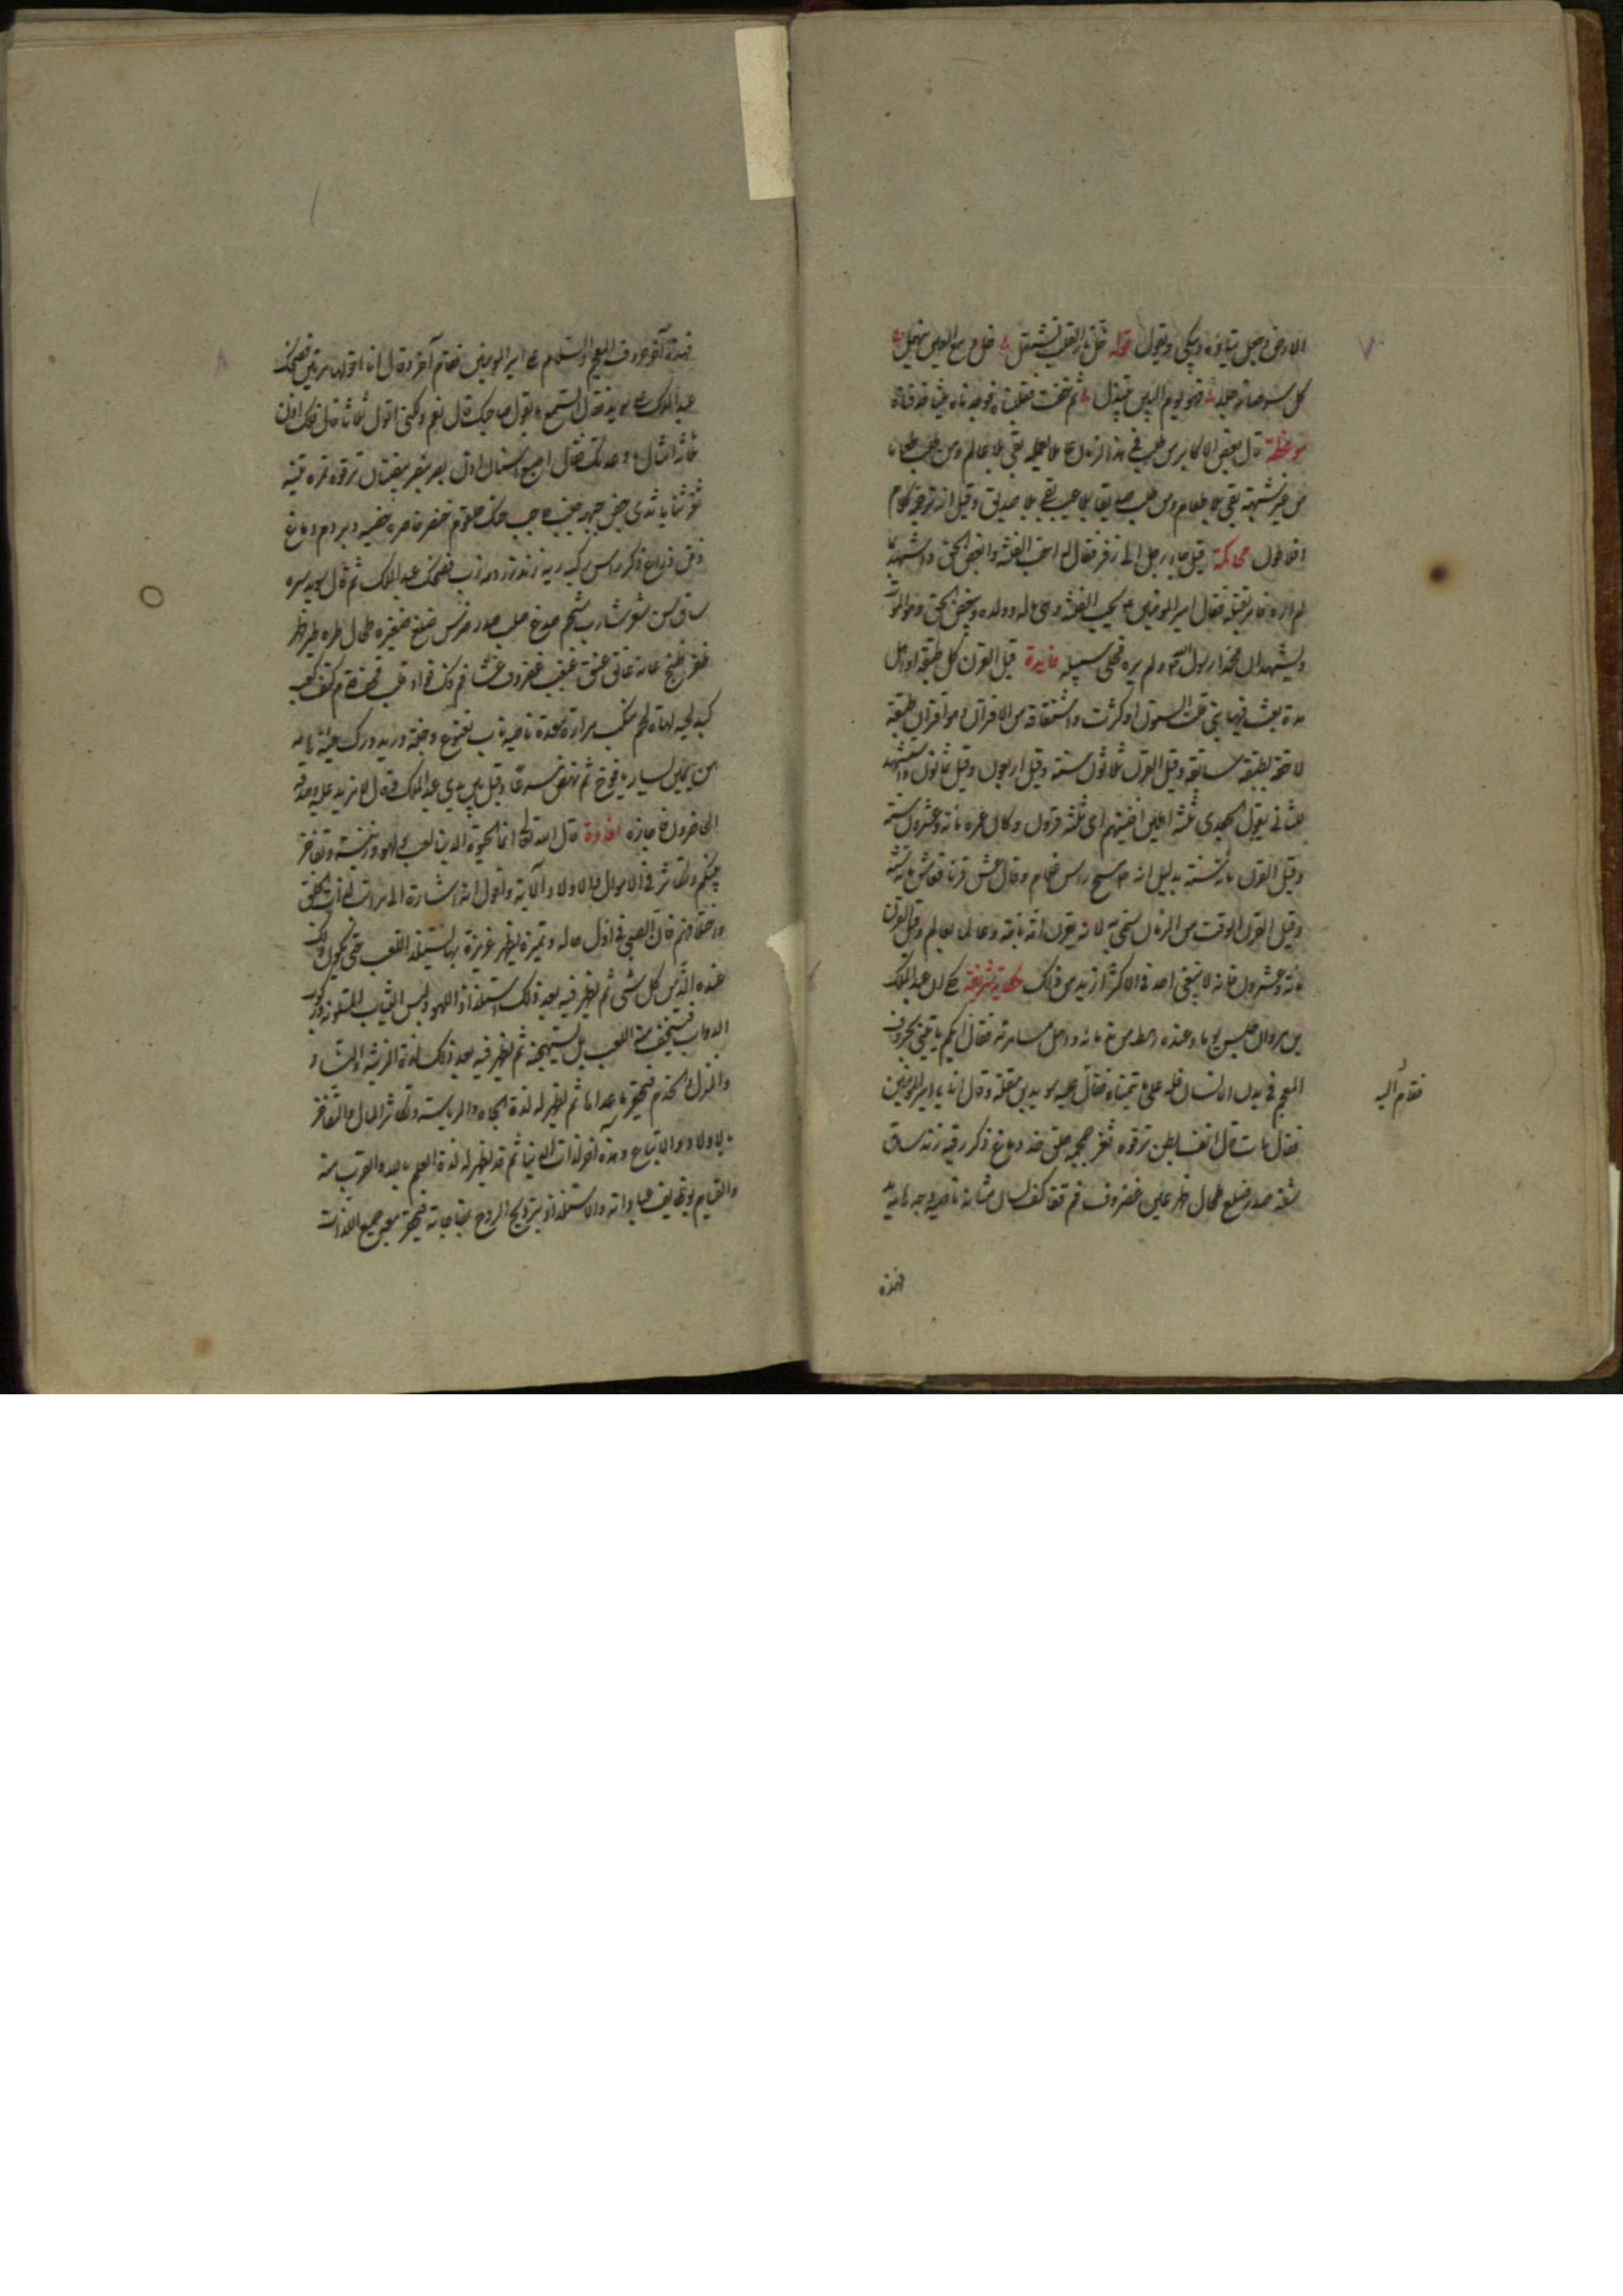 الارض وجعل يتاوّه ويبكي ويقول قوله خل نار القلب تشتعل خل دمع العين ينهمل
كل سر صار خليله فهو يوم البين مبتذل ثم خفت فقلبناه فوجدناه ميتا قد فاق
موعظة قال بعض الاكابر من طلب في هذا الزمان عالما يعمل بعلمه بقي بلا عالم ومن طلب طعاما
من غير شبهة بقي بلا طعام ومن طلب صديقا بلا عيب بقي بلا صديق وقيل انه ترجمة كلام
افلاطون محاكمة قيل جاء رجل الى زفر فقال له احب الفتنة وابغض الحق واشهد بما
لم اره فامر بقتله فقال امير المؤمنين ع يحب الفتنة وهي ماله وولده ويبغض الحق وهو الموت
ويشهد ان محمدا رسول الله ولم يره فخلى سبيله فايدة قيل القرن كل طبقة او اهل
مدة بعث فيها نبي قلت السنون او كثرت واشتقاقه من الاقران وهو اقران طبقة
لاحقة بطبقة سابقة وقيل القرن ثلاثون سنة وقيل اربعون وقيل ثمانون واستشهد
للثاني بقول الجعدي ثلثة اهلين افنيتهم اي ثلثة قرون وكان عمره مائة وعشرون سنة
وقيل القرن مائة سنة بدليل انه ع مسح راس غلام وقال عش قرنا فعاش مائة سنة
وقيل القرن الوقت من الزمان سمي به لانه يقرن امة بامة وعالما بعالم وقيل القرن
مائة وعشرون فانه لا يبقى احد في الاكثر ازيد من ذلك حكاية شريفة حكي ان عبد الملك
بن مروان جلس يوما وعنده رهط من ندمائه واهل مسامرته فقال ايكم ياتيني بحروف
المعجم في بدن الانسان فله علي ما يتمناه فقال اليه سويد بن غفلة وقال انا يا امير المؤمنين
فقال هات قال انف بطن ترقوه ثغر جمجمه حلق خد دماغ ذكر رقبه زند ساق
شفه صدر ضلع طحال ظهر عين غضروف فم قفا كف لسان مثانه ناصيه وجه هامه يد
فقام اليه
فهذه
فهذه آخر حروف المعجم والسلام على امير المؤمنين فقام آخر وقال انا اقولها مرتين فضحك
عبد الملك وقال لسويد اتسمع ما يقول صاحبك قال نعم ولكني اقول ثلاثا قال فلك اذن
ما تشاء فقال اصبع اسنان اذن بصر بنصر بيضتان ترقوه تمره تينه
ثغر ثنايا ثدي جفن جبهه جنب حاجب حنك حلقوم خنصر خاصره خصيه دبر دم دماغ
ذقن ذراع ذكر راس ركبه ريه زند زردمه زب فضحك عبد الملك ثم قال سويد سره
ساق سن شعر شارب شحم صدغ صلب صدر ضرس ضلع ضفيره طحال طره ظهر
ظفر عانه عاتق عنق غبغب غضروف فم فك فؤاد قلب قفا قدم كف كتف كعب
كبد لحيه لهاه لحم منكب مراره معده ناصيه ناب نخاع وجنه وريد ورك هيئة هامه
يمين يسار يافوخ ثم نهض مسرعا وقبل بين يدي عبد الملك فقال لا مزيد عليه وصدقه
الحاضرون فاجازه افادة قال الله تعالى انما الحيوة الدنيا لعب ولهو وزينة وتفاخر
بينكم وتكاثر في الاموال والاولاد الآية واقول انه اشارة الى مراتب لذات الخلق
واخلاقهم فان الصبي في اول حاله وتميزه يظهر غريزة بها يستلذ اللعب حتى يكون ذلك
عنده الذ من كل شئ ثم يظهر فيه بعد ذلك استلذاذ اللهو ولبس الثياب الملونة وركوب
الدواب فيستخف معه اللعب بل يستهجنه ثم يظهر فيه بعد ذلك لذة الزينة بالنساء
والمنزل والخدم فيحقر ما عداها ثم يظهر له لذة الجاه والرياسة وتكاثر المال والتفاخر
بالاولاد والاتباع وهذه آخر لذات الدنيا ثم قد يظهر له لذة العلم بالله والقرب منه
والقيام بوظايف عباداته والاستلذاذ بترويح الروح بمناجاته فيحقر معه جميع اللذات